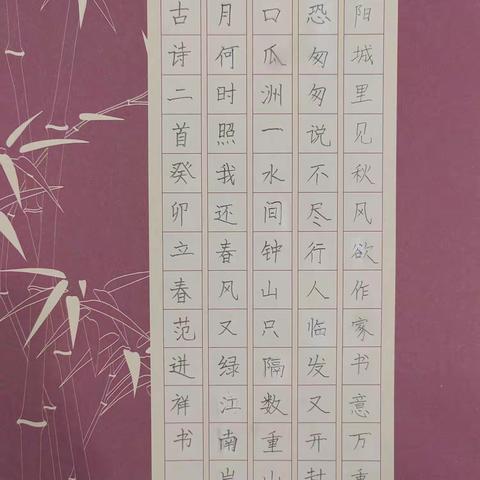 阳城里见秋风欲作家书意万重
恐匆匆说不尽行人临发又开封
口瓜洲一水间钟山只隔数重山
月何时照我还春风又绿江南岸
古诗二首癸卯立春范进祥书